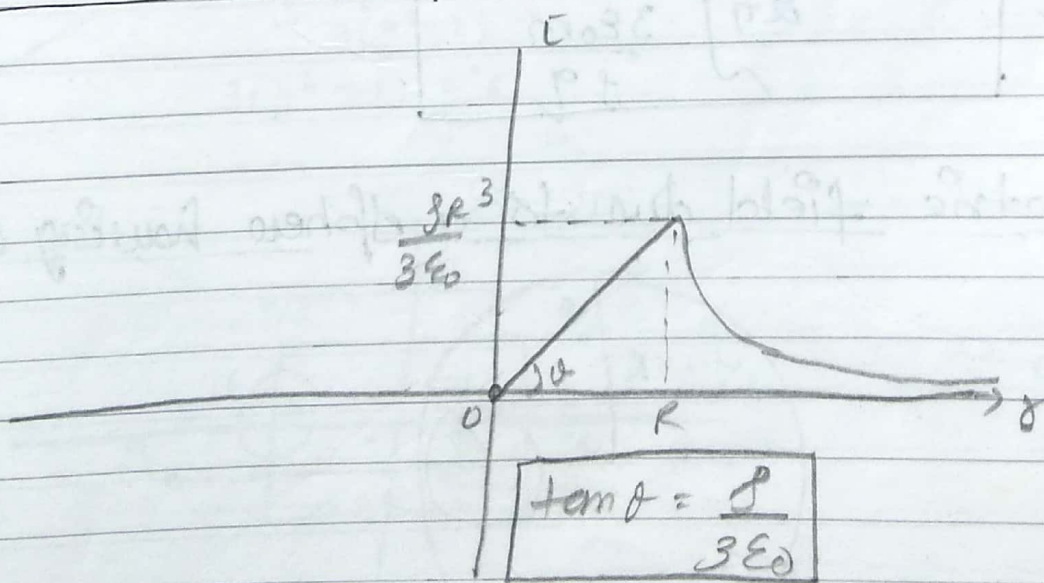 E
ρR³
3ε₀
θ
O R r
tan θ = ρ
3ε₀